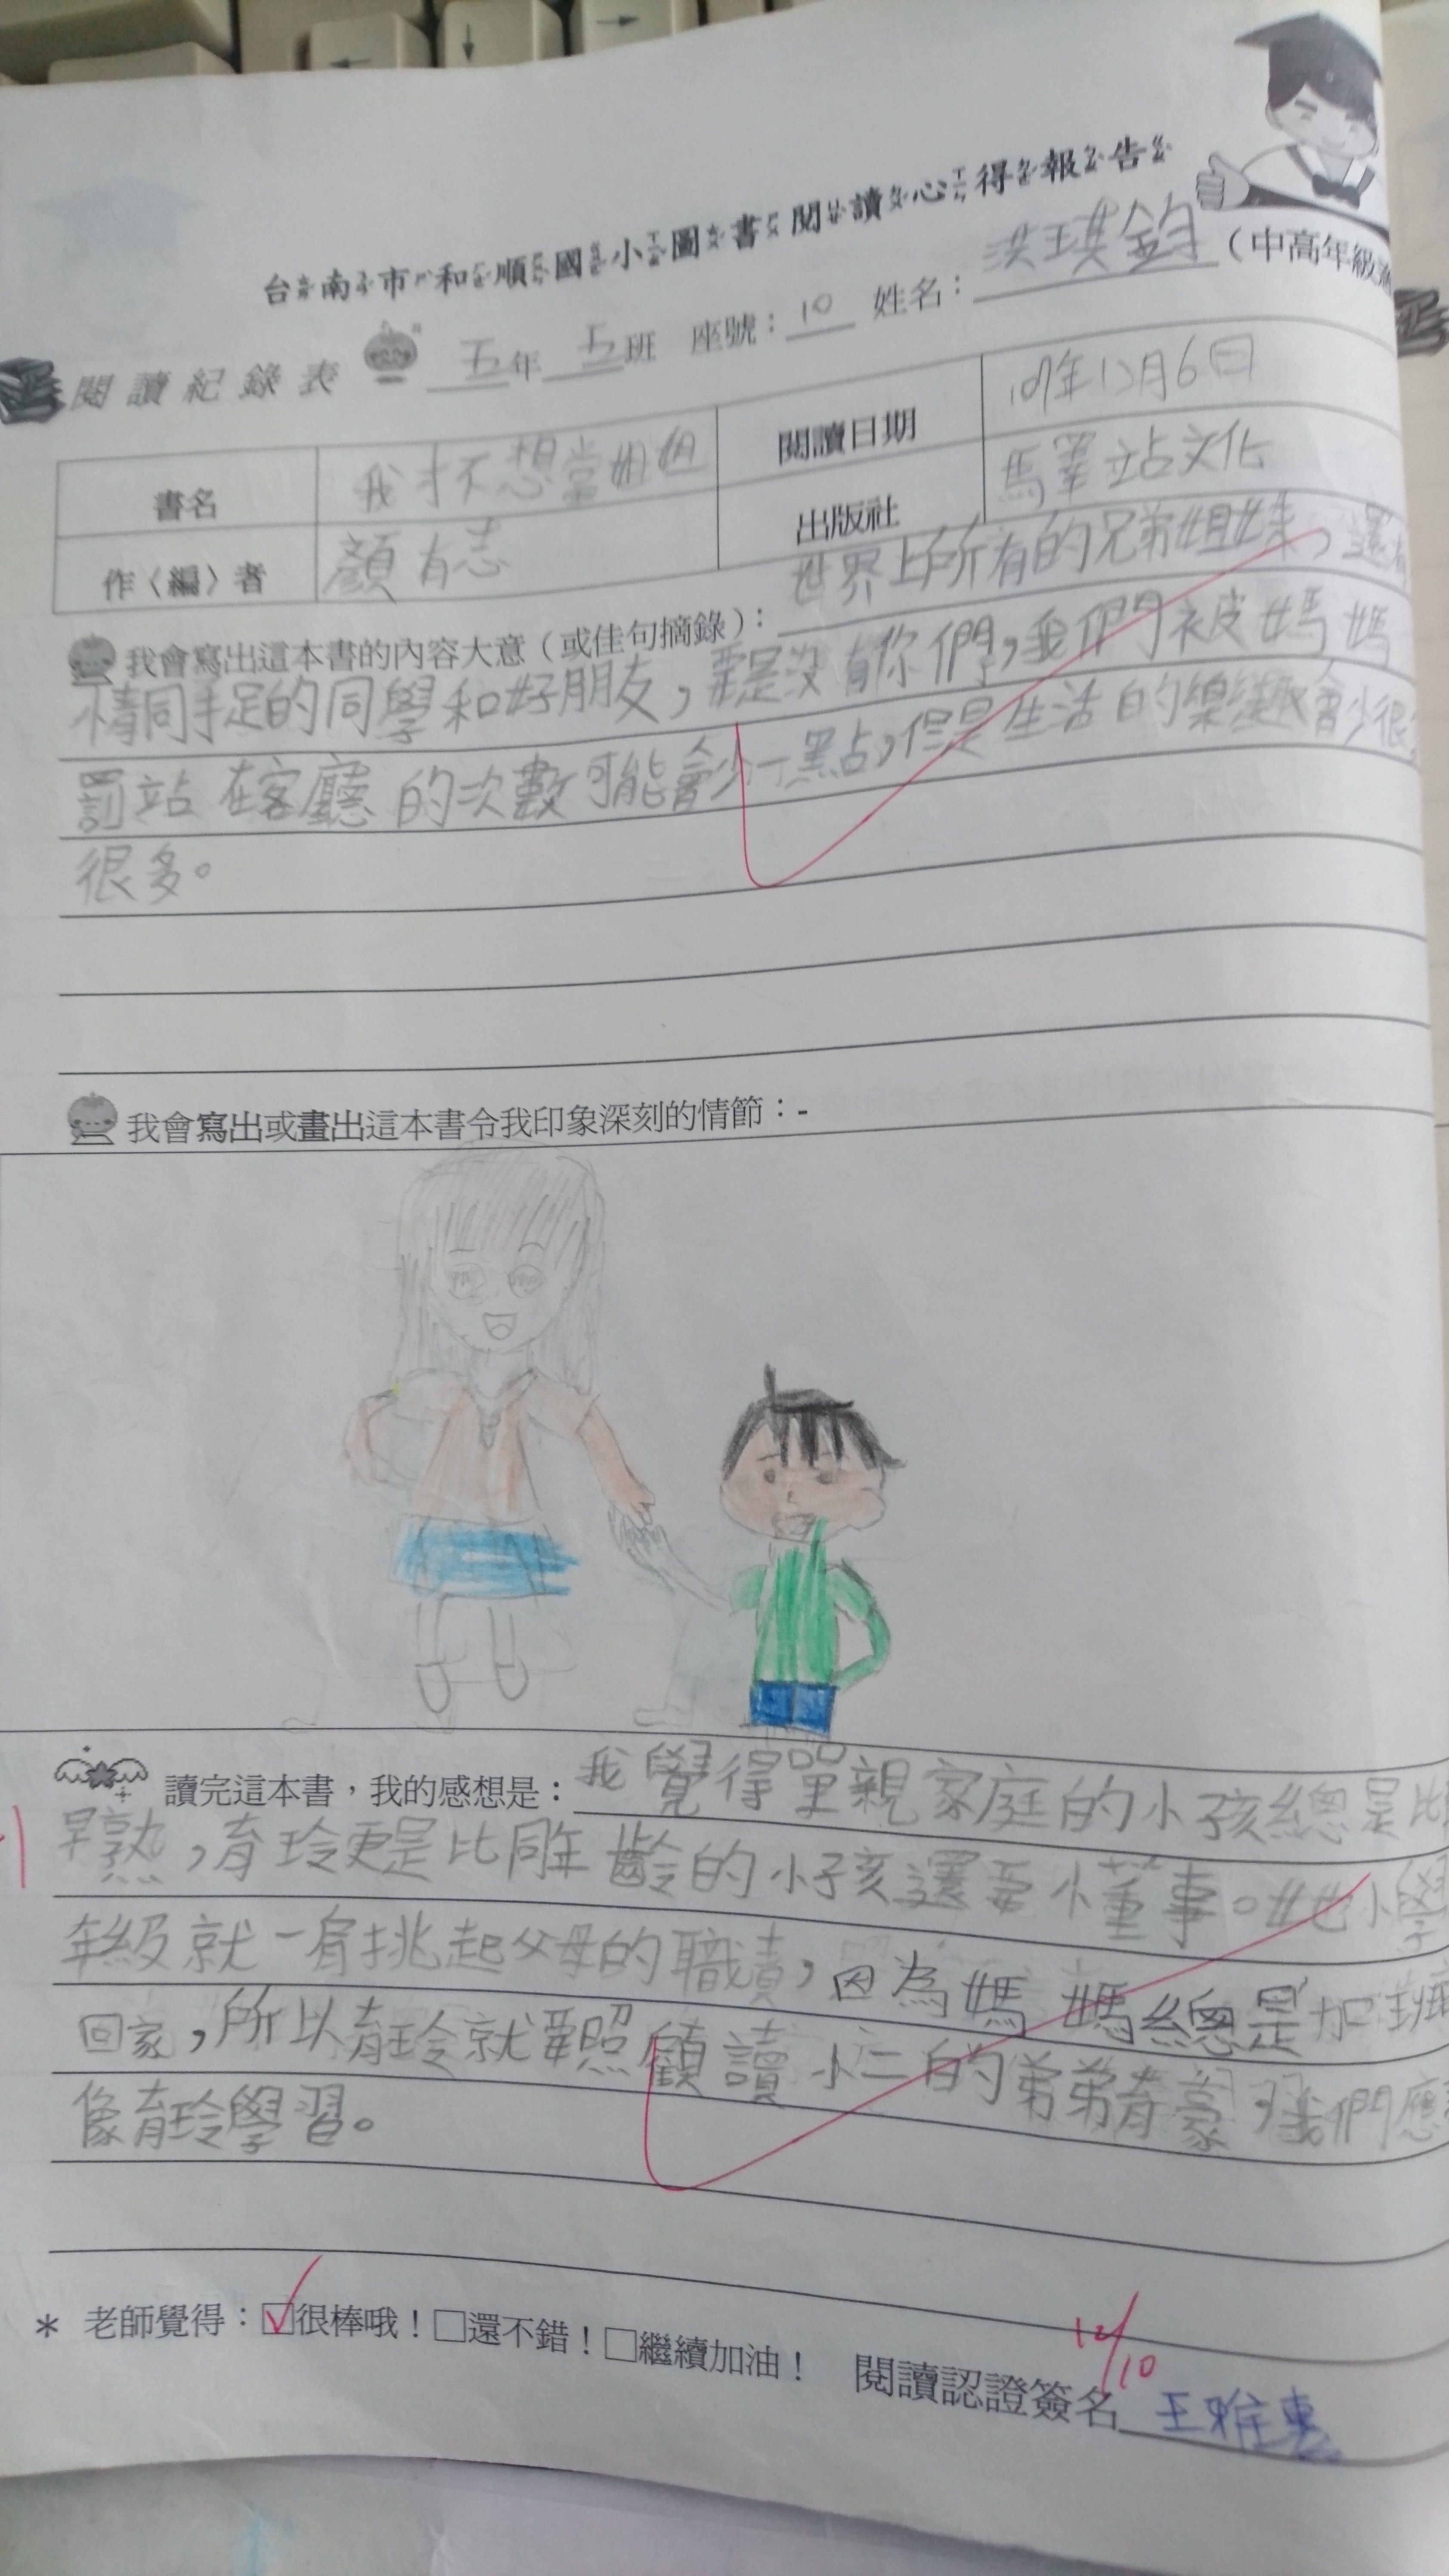 台南市和順國小圖書閱讀心得報告
(中高年級
閱讀紀錄表 五年 五班 座號:10 姓名:洪琪鈞
書名 我才不想當姐姐 閱讀日期 107年12月6日
作〈編〉者 顏志 出版社 站文化
我會寫出這本書的內容大意(或佳句摘錄): 世界上所有的兄弟姐妹,還有
情同手足的同學和好朋友,要是沒有你們,我們被媽媽
罰站在客廳的次數可能會少一點,但是生活的樂趣會少很
很多。
我會寫出或畫出這本書令我印象深刻的情節:-
讀完這本書,我的感想是: 我覺得單親家庭的小孩總是比
早熟,育玲更是比同年齡的小孩還要懂事。她小學
年級就一肩挑起父母的職責,因為媽媽總是加班
回家,所以育玲就要照顧讀小二的弟弟育豪,我們應
像育玲學習。
* 老師覺得:☑很棒哦!□還不錯!□繼續加油! 閱讀認證簽名 王雅惠
12/10